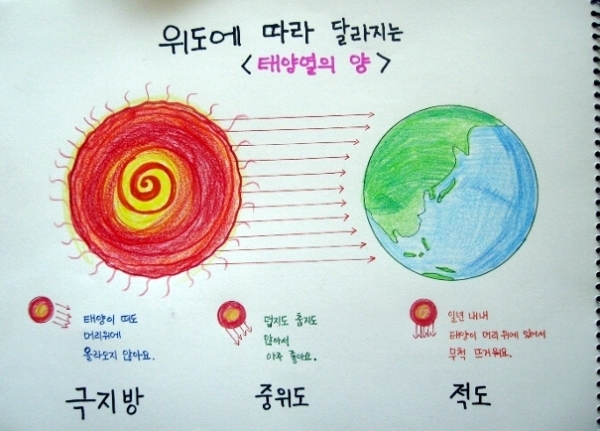 위도에 따라 달라지는
<태양열의 양>
태양이 떠도
머리위에
올라오지 않아요.
덥지도 춥지도
않아서
아주 좋아요.
일년 내내
태양이 머리 위에 있어서
무척 뜨거워요.
극지방
중위도
적도